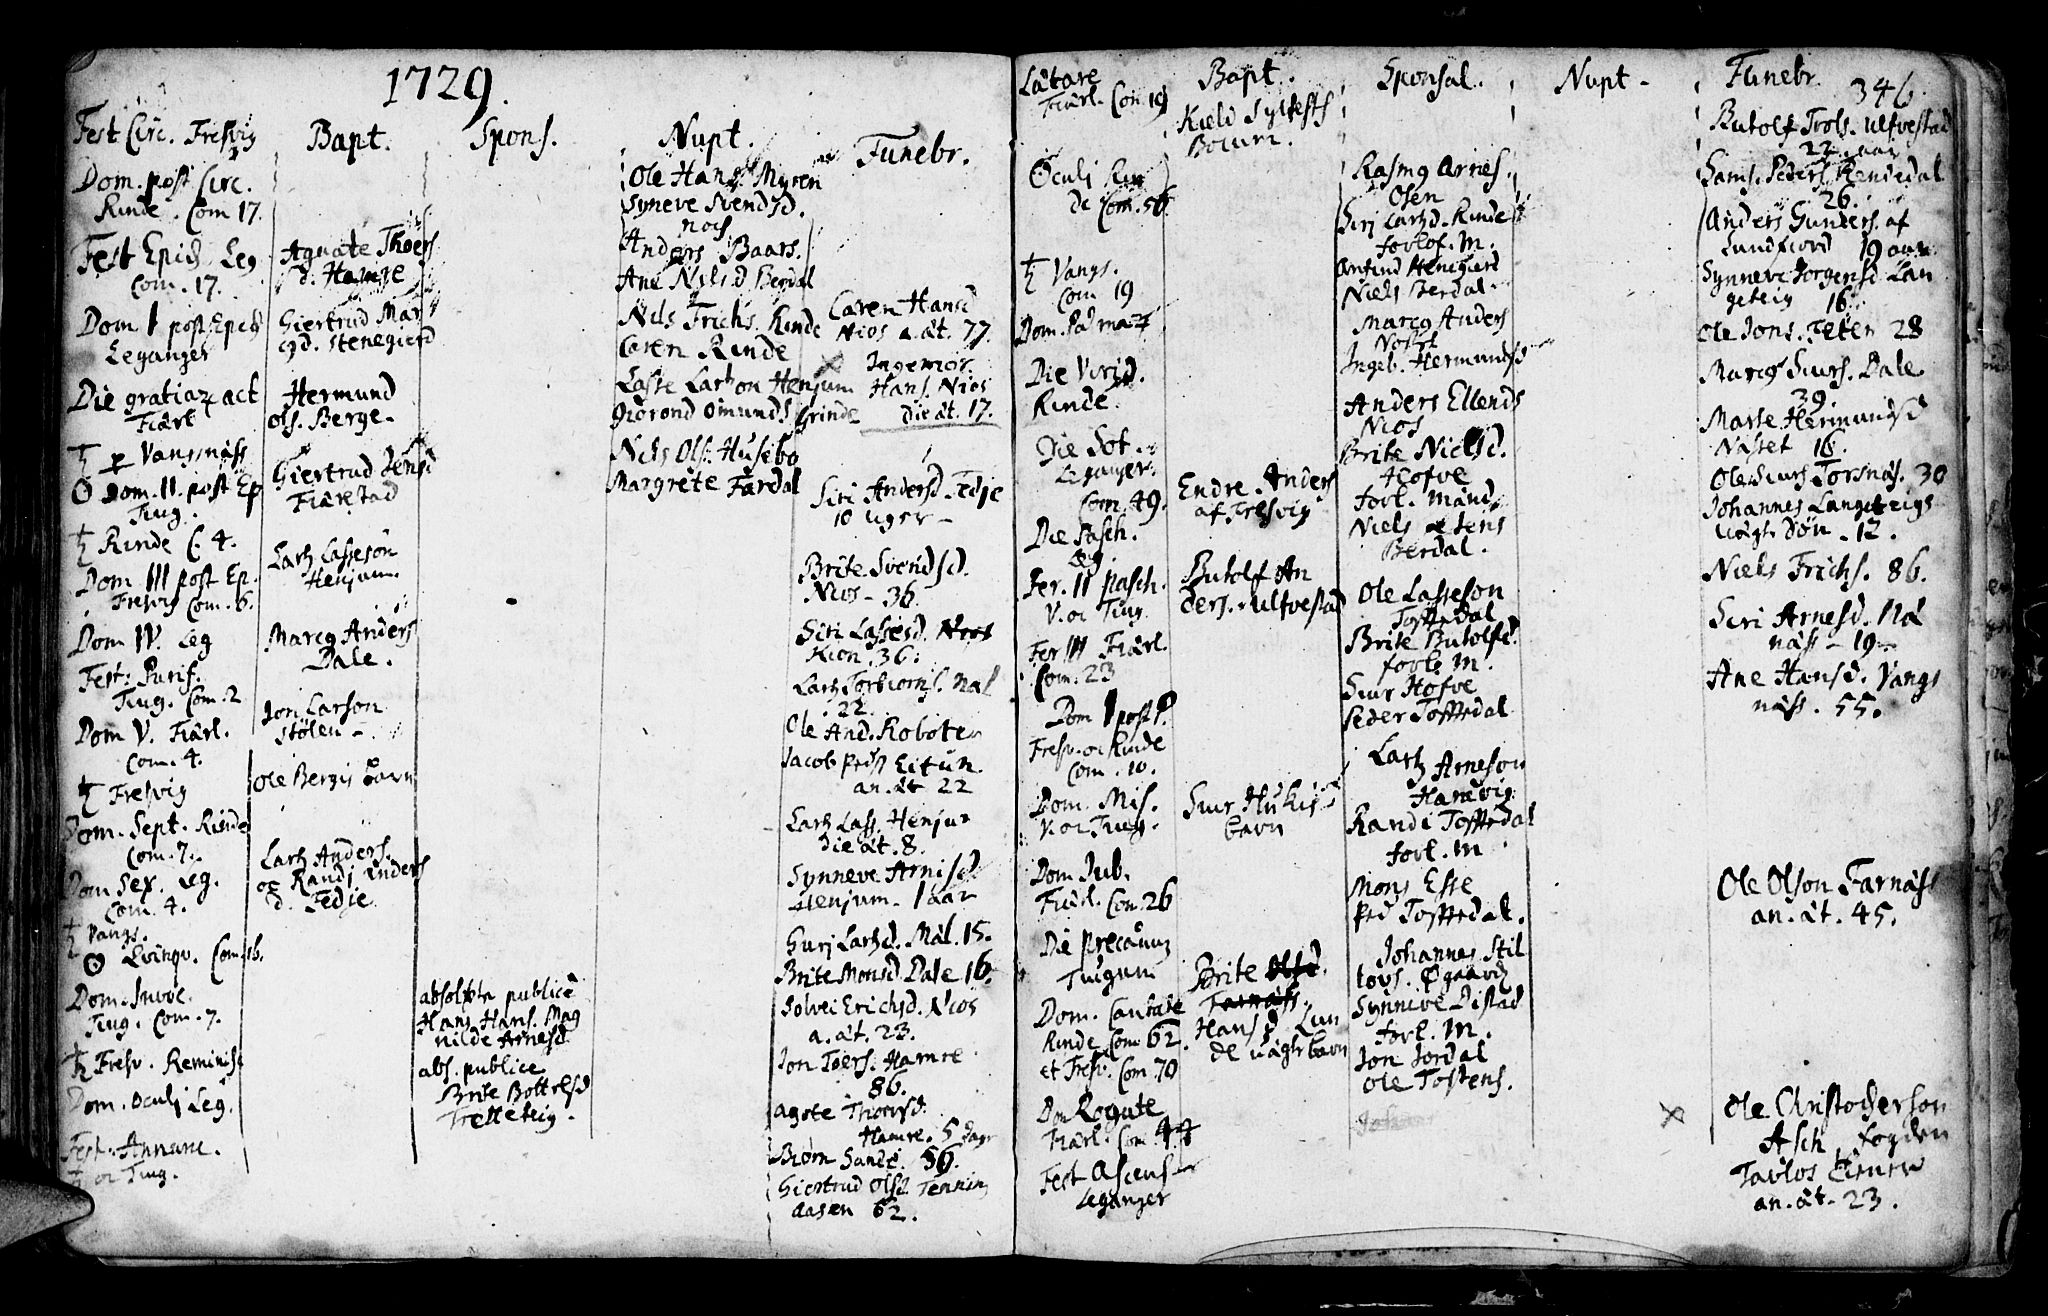 1729.
Fest Circ. Fresvig
Dom. post Circ.
Rinde. Com 17.
Fest Epiph Leg
Com. 17.
Dom 1 post Epiph
Leganger
Die gratiar act
Fiärl
Vangsnäss
Dom. II. post Ep
Ting.
Rinde C. 4.
Dom III post Ep.
Fresvig Com. 6.
Dom IV. Leg
Fest. Purif.
Ting. Com. 2
Dom V. Fiärl.
Com. 4.
Fresvig
Dom. Sept. Rinde
Com. 7.
Dom Sex. Leg.
Com. 4.
Vangs.
Qvinqv. Com. 16.
Dom. Invoc.
Ting. Com. 7.
Fresv. Reminisc
Dom. Oculi Leg.
Fest. Annunc.
oc Ting.
Bapt.
Agnate Thoers
d. Hamre
Giertrud Mar
gd. Stenegierd
Hermund
Ols. Berge
Giertrud Jensd
Fiärestad
Lartz Lasseson
Henjum.
Marcg Anders
Dale.
Jon Larson
Stölen
Ole Bergis barn
Lartz Anders.
oc Randj Anders
d. Fedje
Spons.
absolute publice
Hans Hans. Mag
nilde Arnesd.
abs. publice
Brite Bottolfsd
Tretteteig.
Nupt.
Ole Hans. Myren
Syneve Svendsd.
Nos
Anders Baars.
Ane Nilsd Berdal
Nils Frichs. Rinde
Caren Rinde
Lasse Larson Henjum
Giörond Omunds Grinde
Nils Ols. Husebo
Margrete Fardal
Funebr.
Caren Hansd
Nios a. ät. 77.
Ingemor.
Hans. Nios
die ät. 17.
Siri Andersd. Fedje
10 uger
Brite Svendsd.
Nios 36
Siri Lassesd.
Kion. 36.
Lartz Torbiorns. Näl
22
Ole And. Robote
Jacob Peds Eitun.
an. ät 22
Lartz Lass. Henjum
die ät. 8.
Synneve Arnisd
Henjum. 1 aar
Gurj Lartzd. Mäl. 15.
Brite Monsd. Dale 16.
Solvei Erichsd. Nios
a. ät. 23.
Jon Toers. Hamre
86.
Agote Thorsd.
Hamre. 5 dage
Biorn Sande. 56.
Giertrud Olsd. Tenning
aasen 62.
Lätare
Fiärl. Com. 19
Oculj Rin
de Com. 56
Vangs.
Com 19
Dom. Palmar
Die Virid.
Rinde.
Die Jov.
Leganger.
Com. 49.
Die Pasch.
Leg.
Fer. II Pasch.
V. oc Ting.
Fer III Fiärl.
Com. 23
Dom 1 post P.
Fresv. oc Rinde
Com. 10.
Dom. Mis.
V. oc Ting.
Dom Jub.
Fiärl. Com. 26
Die precaum
Tingum
Dom. Cantate
Rinde Com 62.
et Fresv. Com 70
Dom Rogate
Fiärl. Com 44
Fest Ascens
Leganger
Bapt.
Kield Sylfests
Boium.
Endre Anders
af Fresvig
Butolf An
ders. Ulfvestad
Siur Hukis
barn
Brite Olsd.
Farnäss.
Hans d Lun
de uägte barn
Sponsal.
Rasmg Arnes.
Osen
Sirj Lartzd. Rinde
forlof. m.
Anfind Henegierd
Niels Berdal
Marcg Anders
Ingeb. Hermundsd
Anders Ellends
Nios
Brite Nielsd.
Hofve
forl. mænd
Niels oc Jens
Berdal.
Ole Lasseson
Tofftedal
Brite Butolfsd.
forl. m.
Siur Hofve
Peder Tofftedal
Lartz Arneson
Hamvig
Randi Tofftedal
forl. m.
Mons Esse
Ped Tofftedal.
Johannes Stil
lovs. Ögaard
Synnive Distad
forl. m.
Jon Jordal
Ole Tostens.
Nupt.
Funebr.
346.
Butolf Trols. Ulfvestad
22 aar
Hams. Peders. Rendedal
26.
Anders Gunders. af
Sundfiord 19 aar
Synneve Jorgensd Lan
geteig 16.
Ole Jons. Teten 28
Marcg Siurs. Dale
39.
Marte Hermundsd
Näset 16.
Ole Siurs Torsnäs. 30
Johannes Langeteigs
uägte Søn. 12.
Niels Frichs. 86.
Siri Arnesd. Näl
näss 19
Ane Hansd. Vangs
näss. 55.
Ole Olson Farnäss
an. ät. 45.
Ole Christopherson
Asch, fogden
an. ät. 23.